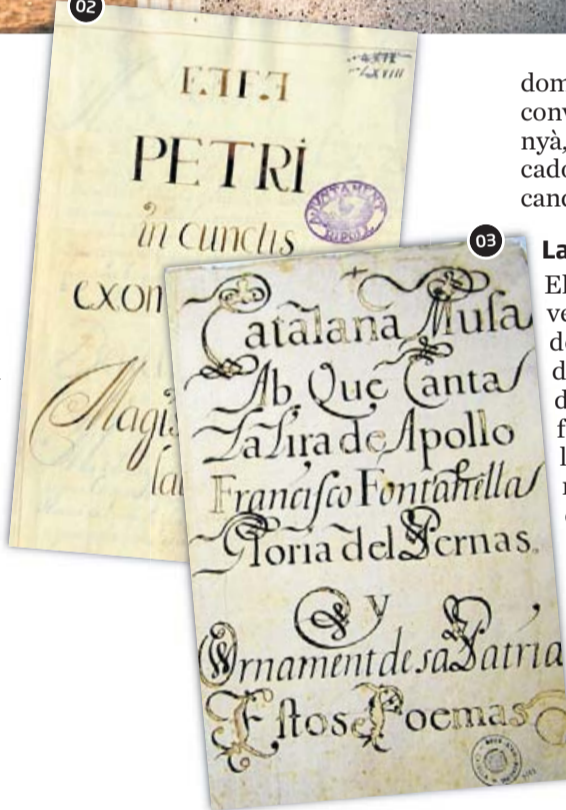 02
PETRI
in cunctis
exon
Magis
lau
AJUNTAMENT
RIPOLL
03
Catalana Musa
Ab Que Canta
La Lira de Apollo
Francisco Fontanella
Gloria del Pernas.
y
Ornament de sa Patria
Estos Poemas
dom
conv
nyà,
cado
canc
La
El
ve
de
d
d
f
l